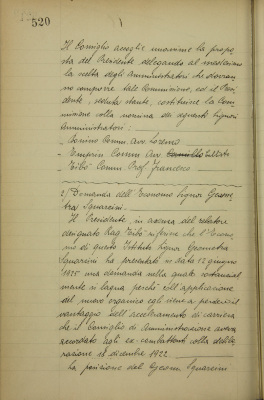 520
Il Consiglio accoglie unanime la propo-
sta del Presidente delegando al medesimo
la scelta degli Amministratori che dovran-
no comporre tale Commissione, ed il Presi-
dente, seduta stante, costituisce la Com-
missione colla nomina dei seguenti Signori
Amministratori:
- Comm. Avv. Lorenzo
- Comm. Avv.
- Comm. Prof. Francesco
2) Domanda dell'Economo Signor Geome-
tra Guarcini.
Il Presidente in assenza del relatore
designato Rag. riferisce che l'Econo-
mo di questo Istituto Signor Geometra
Guarcini ha presentato in data 12 giugno
1925 una domanda nella quale sostanzial-
mente si lagna perché coll'applicazione
del nuovo organico egli viene a perdere il
vantaggio dell'acceleramento di carriera
che il Consiglio di Amministrazione aveva
accordato agli ex combattenti colla delibe-
razione 18 dicembre 1922.
La posizione del Geom. Guarcini